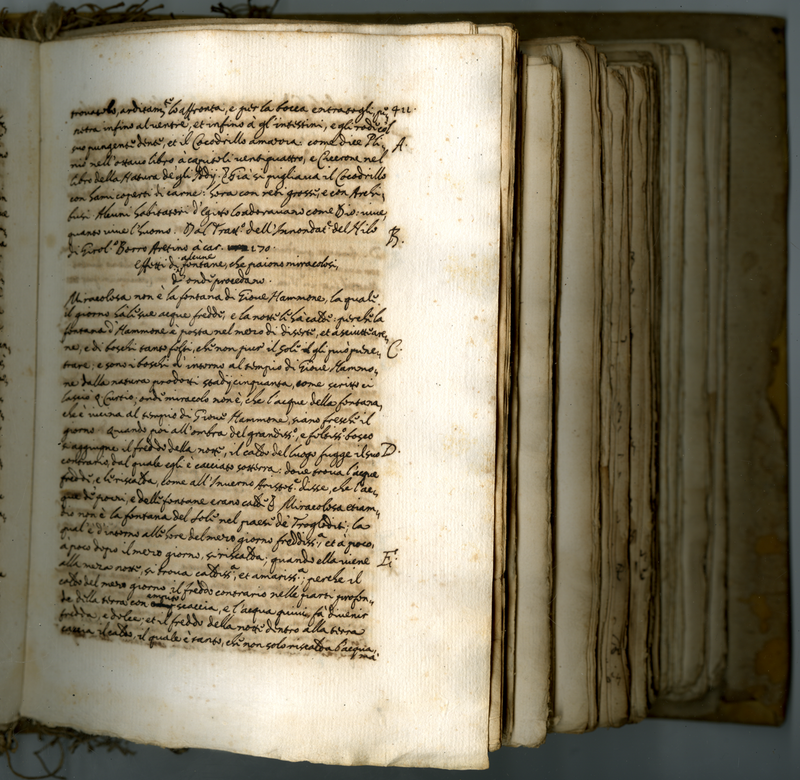 trovatolo, arditam.te lo affronta, e per la bocca entratogli pe- 411.
netra infino al ventre, et infino à gli intestini, e gli rode col
suo pungente dente, et il Cocodrillo amazza. come dice Pli- A.
nio nell'ottavo libro à capitoli ventiquattro, e Cicerone nel
libro della Natura de gli Iddij. Già si pigliava il Cocodrillo
con hami coperti di carne: hora con reti grosse, e con Archi-
busi. Alcuni habitatori d'Egitto lo adoravano come Dio: vive,
quanto vive l'huomo. Dal Tratt.o dell'Innondat.e del Nilo B.
di Girol.o Borro Aretino à car. 270.
Effetti di alcune fontane, che paiono miracolosi,
d'onde procedano.
Miracolosa non è la fontana di Giove Hammone, la quale
il giorno hà le sue acque fredde, e la notte le hà calde: perche la
fontana d'Hammone è posta nel mezo di diserti, et asciutte are-
ne, e di boschi tanto folti, che non pur il sole vi gli può pene- C.
trare; e sono i boschi d'intorno al tempio di Giove Hammo-
ne dalla natura prodotti stadij cinquanta, come scritto ci
lasciò Q. Curtio; onde miracolo non è, che l'acque della fontana,
che è vicina al tempio di Giove Hammone, siano fresche il
giorno. Quando poi all'ombra del grandiss.o, e foltiss.o bosco
s'aggiugne il freddo della notte, il caldo del luogo fugge il suo D.
contrario dal quale egli è cacciato sotterra, dove trova l'acqua
fredda, e la riscalda, come all'Inverno Aristot.e disse, che l'ac-
que de pozzi, e delle fontane erano calde. Miracolosa etiam-
dio non è la fontana del Sole nel paese de Trogloditi; la
qual è d'intorno alle hore del mezo giorno freddiss.a, et à poco,
a poco dopo il mezo giorno, si riscalda; quando ella viene E.
alla meza notte, si trova caldiss.a, et amariss.a; perche il
caldo del mezo giorno il freddo contrario nelle parti profon-
de della terra con empito scaccia, e l'acqua quivi fà divenir
fredda, e dolce; et il freddo della notte dentro alla terra
caccia il caldo, il quale è tanto, che non solo riscalda l'acqua,
ma